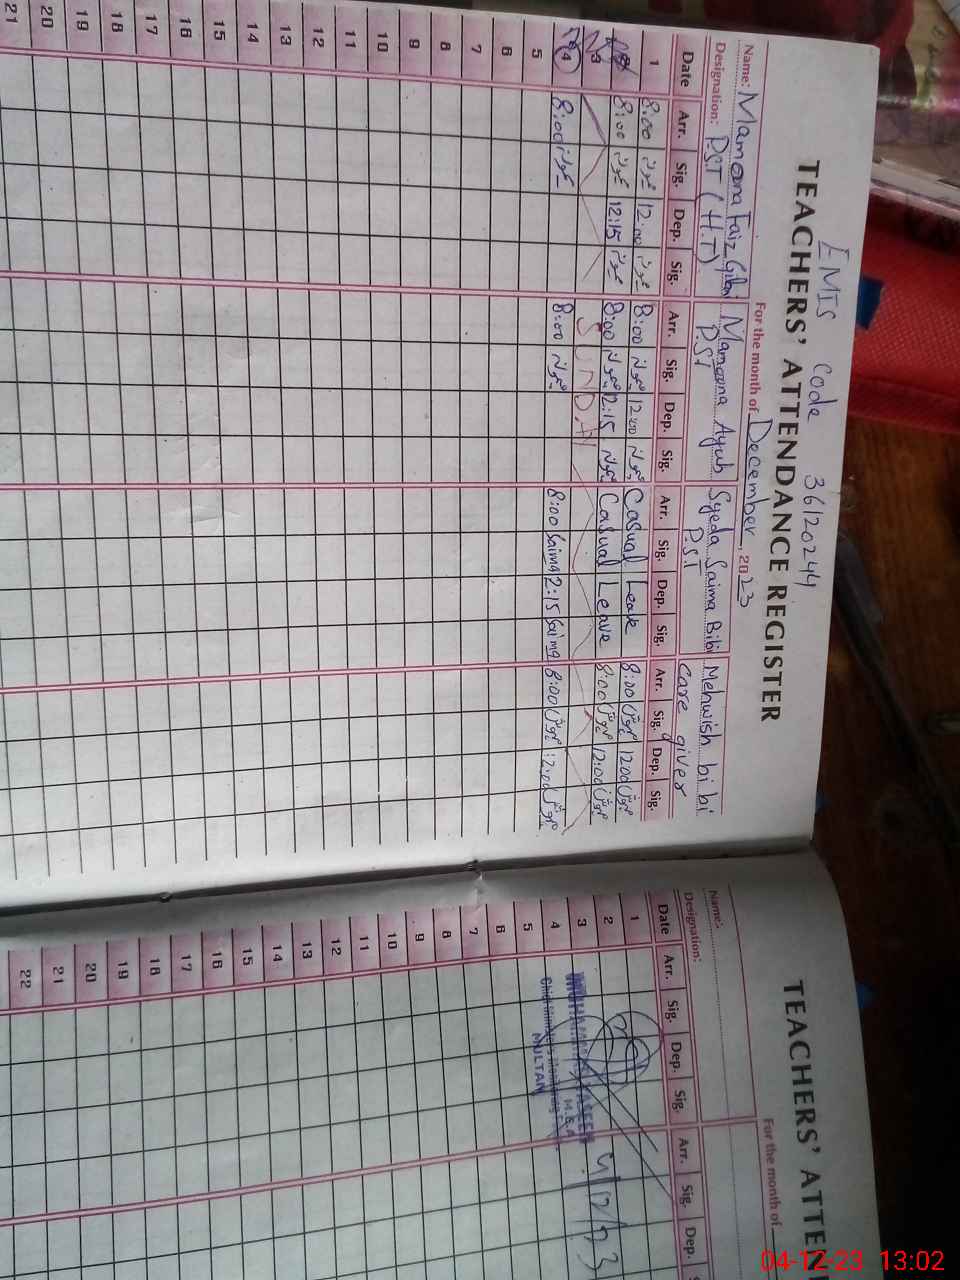 EMIS Code 36120244
TEACHERS' ATTENDANCE REGISTER
For the month of December, 2023
Name: Mamoona Faiz Gilani Mamoona Ayub Syeda Saima Bibi Mehwish bi bi
Designation: P.S.T (H.T) P.S.T P.S.T Care giver
Date Arr. Sig. Dep. Sig. Arr. Sig. Dep. Sig. Arr. Sig. Dep. Sig. Arr. Sig. Dep. Sig.
1 8:00 12:00 8:00 12:00 Casual Leave 8:00 1200
8:00 12:15 8:00 12:15 Casual Leave 8:00 12:00
3 SUNDAY
4 8:00 8:00 8:00 Saima 2:15 Saima 8:00 12:00
5
6
7
8
9
10
11
12
13
14
15
16
17
18
19
20
21
TEACHERS' ATTEN
For the month of
Name:
Designation:
Date Arr. Sig. Dep. Sig. Arr. Sig. Dep.
1
2
3 MUHAMMAD 4/12/23
4 M.E.A
Chief Minister's Monitoring
5 MULTAN
6
7
8
9
10
11
12
13
14
15
16
17
18
19
20
21
22
04-12-23 13:02